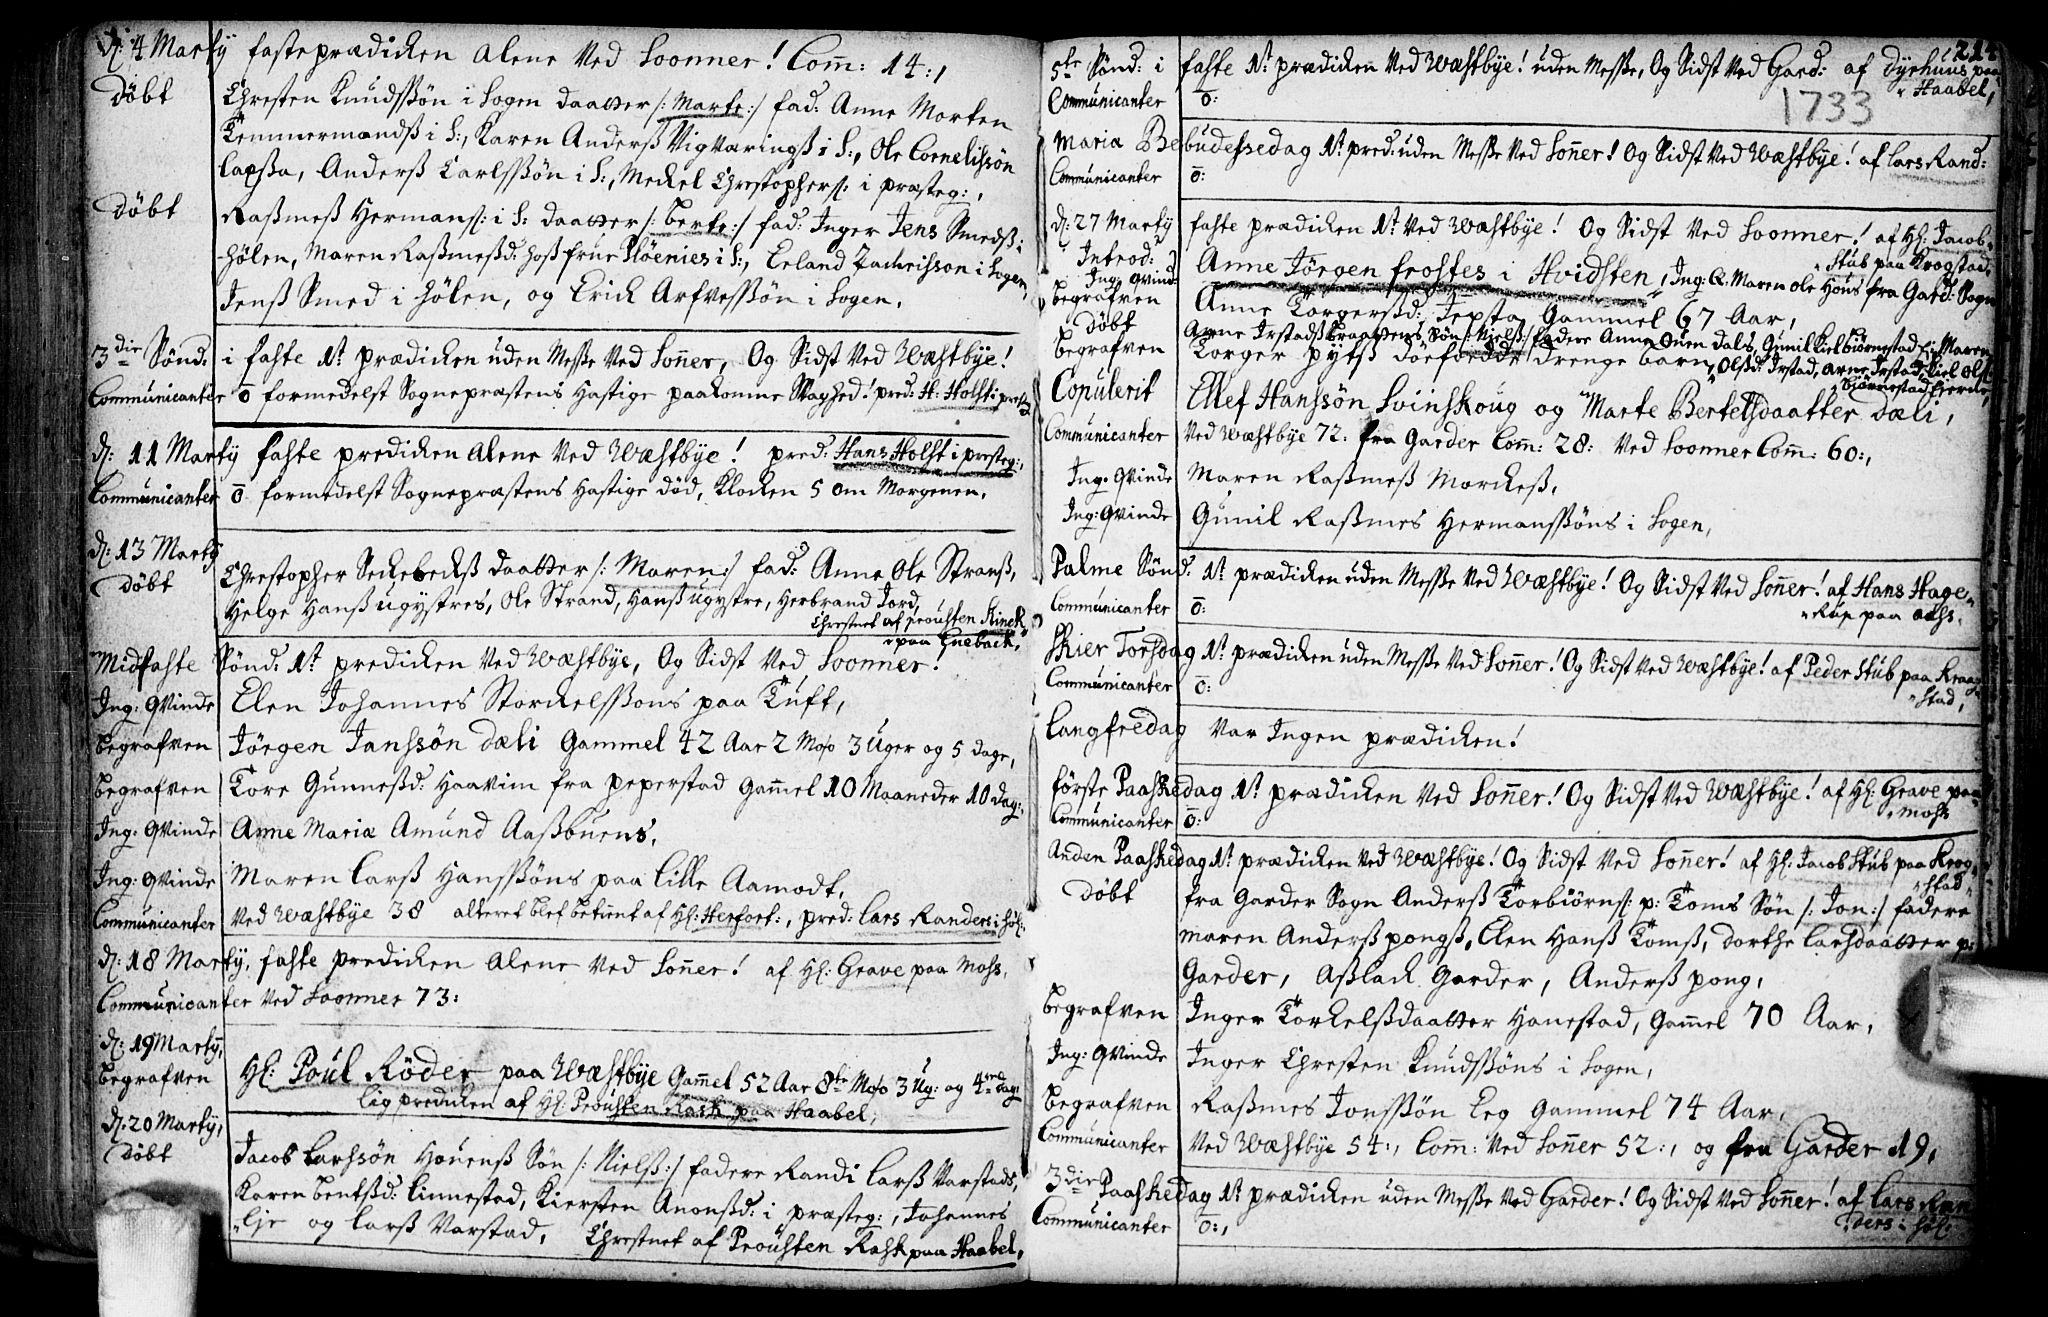 d: 4 Martÿ fasteprædicken alene Ved Soonner! Com̄: 14:,
døbt Christen Knudssøn i Sogen daatter /: Marte:/ fad: Anne Morten
Temmermandss i S:, Karen Anderss Vigværingss i S:, Ole Cornelissøn
Anderss Carlssøn i S:, Meckel Christophers: i præsteg:,
døbt Rassmess Hermans: i S: daatter /: Berte:/ fad: Inger Jens Smedss i
Hølen, Maren Rassmessd: hoss frue Pløenies i S:, Erland Zachrisson i Sogen,
Jenss Smed i Hølen, og Erick Arfvessøn i Sogen.
3die Sønd: i faste 1t prædicken uden Messe Ved Son̄er, Og Sidst Ved Wæstbÿe!
Communicanter ō formedelst Sognepræstens Hastige paakomne Svaghed! pred: H: Holst i præsteg
d: 11 Martÿ faste predicken alene Ved Wæstbÿe! pred: Hans Holst i presteg:,
Communicanter ō formedelst Sognepræstens Hastige død, Klocken 5 om Morgenen.
d: 13 Martÿ
døbt Christopher Seckebeckss daatter /: Maren:/ fad: Anne Ole Stranss,
Helge Hanss Ugystres, Ole Strand, Hanss Ugystre, Herbrand Jord,
Christnet af Prousten Kinck
paa Eneback.
Midfaste Sønd: 1t predicken Ved Wæstbÿe, Og Sidst Ved Soonner!
Ing: Qvinde Elen Johannes Storckelssøns paa Tuft,
begrafven Jørgen Janssøn Dæli Gammel 42 Aar 2 Mo/o 3 Uger og 5 dage,
begrafven Tore Gunnessd: Haavim fra Peperstad Gam̄el 10 Maaneder 10 dag:
Ing: Qvinde Anne Maria Amund Aassbuens,
Ing: Qvinde Maren Larss Hanssøns paa Lille Aamodt,
Communicanter Ved Wæstbÿe 38 alteret blef betient af Hl: Herfort:, pred: Lars Randers i Høl:
d: 18 Martÿ, faste predicken alene Ved Son̄er! af Hl: Grave paa Moss,
Communicanter Ved Soonner 73:
d: 19 Martÿ,
begrafven Hl: Poul Røder paa Wæstbÿe Gam̄el 52 Aar 8te Mo/o 3 Ug: og 4re dage
Ligpredicken af Hl: Prousten Rask paa Haabel,
d: 20 Martÿ,
døbt Jacob Larssøn Houenss Søn /: Nielss:/ fadere Randi Larss Varstads,
Karen Bentssd: Linnestad, Kiersten Anonssd: i præsteg:, Johannes
Lie og Larss Varstad, Christnet af Prousten Rask paa Haabel,
214
1733
5te Sønd: i faste 1t prædicken Ved Wæstbÿe! uden Messe, Og Sidst Ved Gard: af Dyrhuus paa
Haabel,
Communicanter ō:
Maria Bebudelsedag 1t pred: uden Messe Ved Son̄er! Og Sidst Ved Wæstbÿe! af Lars Rand:
Communicanter ō:
d: 27 Martÿ faste prædicken 1t Ved Wæstbÿe! Og Sidst Ved Soonner! af Hl: Jacob
Stub paa Krogstad,
Introd: Anne Jørgen frostes i Hvidsten,
Ing: Qvind: Ing: Q. Maren Ole Hous fra Gard: Sogn
begrafven Anne Torgerssd: Gammel 67 Aar,
døbt Arne Irstadss Søn /: Nielss:/ fadere Anne Ouen Dals, Gunil Kiel Biørnestad Eje, Maren
Olssd: Irstad, Arne Irstad, Kiel Olss:
Biørnestad Eierde,
begrafven Torger Pytss døefødde drenge barn
Copulerit Ellef Hanssøn Svinskoug og Marte Bertelsdaatter Dæli,
Communicanter Ved Wæstbÿe 72: fra Garder Com̄: 28: Ved Soonner Com̄: 60:,
Ing: Qvinde Maren Rassmess Morckess,
Ing: Qvinde Gunil Rassmes Hermanssøns i Sogen,
Palme Sønd: 1t prædicken uden Messe Ved Wæstbÿe! Og Sidst Ved Son̄er! af Hans Hage-
Rup paa
Communicanter ō:
Skier Torsdag 1t prædicken uden Messe Ved Son̄er! Og Sidst Ved Wæstbÿe! af Peder Stub paa Kraag
stad,
Communicanter ō:
Langfredag Var Ingen prædicken!
første Paaskedag 1t prædicken Ved Son̄er! Og Sidst Ved Wæstbÿe! af Hl: Grave paa
Moss
Communicanter ō:
Anden Paaskedag 1t prædicken Ved Wæstbÿe! Og Sidst Ved Son̄er! af Hl: Jacob Stub paa Krog
stad
døbt fra Garder Sogn Anderss Torbiørns: p: Toms Søn /: Jon:/ fadere
Maren Anderss Pongss, Elen Hanss Tomss, Dorthe Larsdaatter p:
Garder, Asslack Garder, Anderss Pong,
begrafven Inger Torkelssdaatter Hanestad, Gam̄el 70 Aar,
Ing: Qvinde Inger Christen Knudssøns i Sogen,
begrafven Rassmes Jonssøn Leg Gammel 74 Aar,
Communicanter Ved Wæstbÿe 54:, Com̄: Ved Son̄er 52:, og fra Garder 19,
3die Paaskedag 1t prædicken uden Messe Ved Garder! Og Sidst Ved Son̄er! af Lars Ran
ders i Høl:
Communicanter ō:,